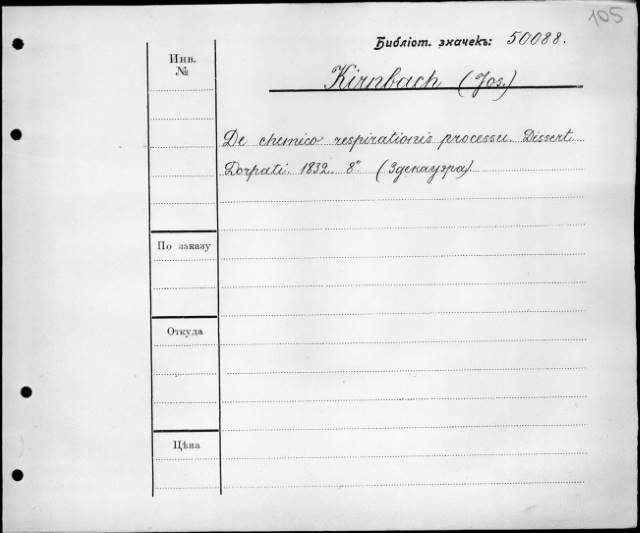 105
Библіот. значекъ: 50088.
Инв.
№
Kirnbach (Jos.)
De chemico respirationis processu. Dissert.
Dorpati. 1832. 8° (Здекауэра)
По заказу
Откуда
Цѣна